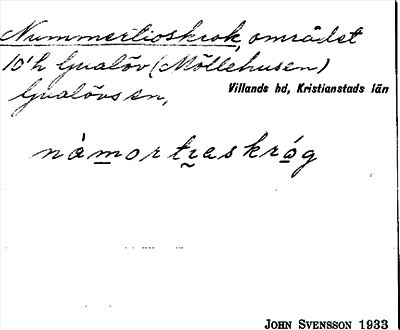 Nummertioskrok, området
10'h Gualöv (Möllehusen)
Gualövs sn, Villands hd, Kristianstads län
nåmortıaskråg
JOHN SVENSSON 1933